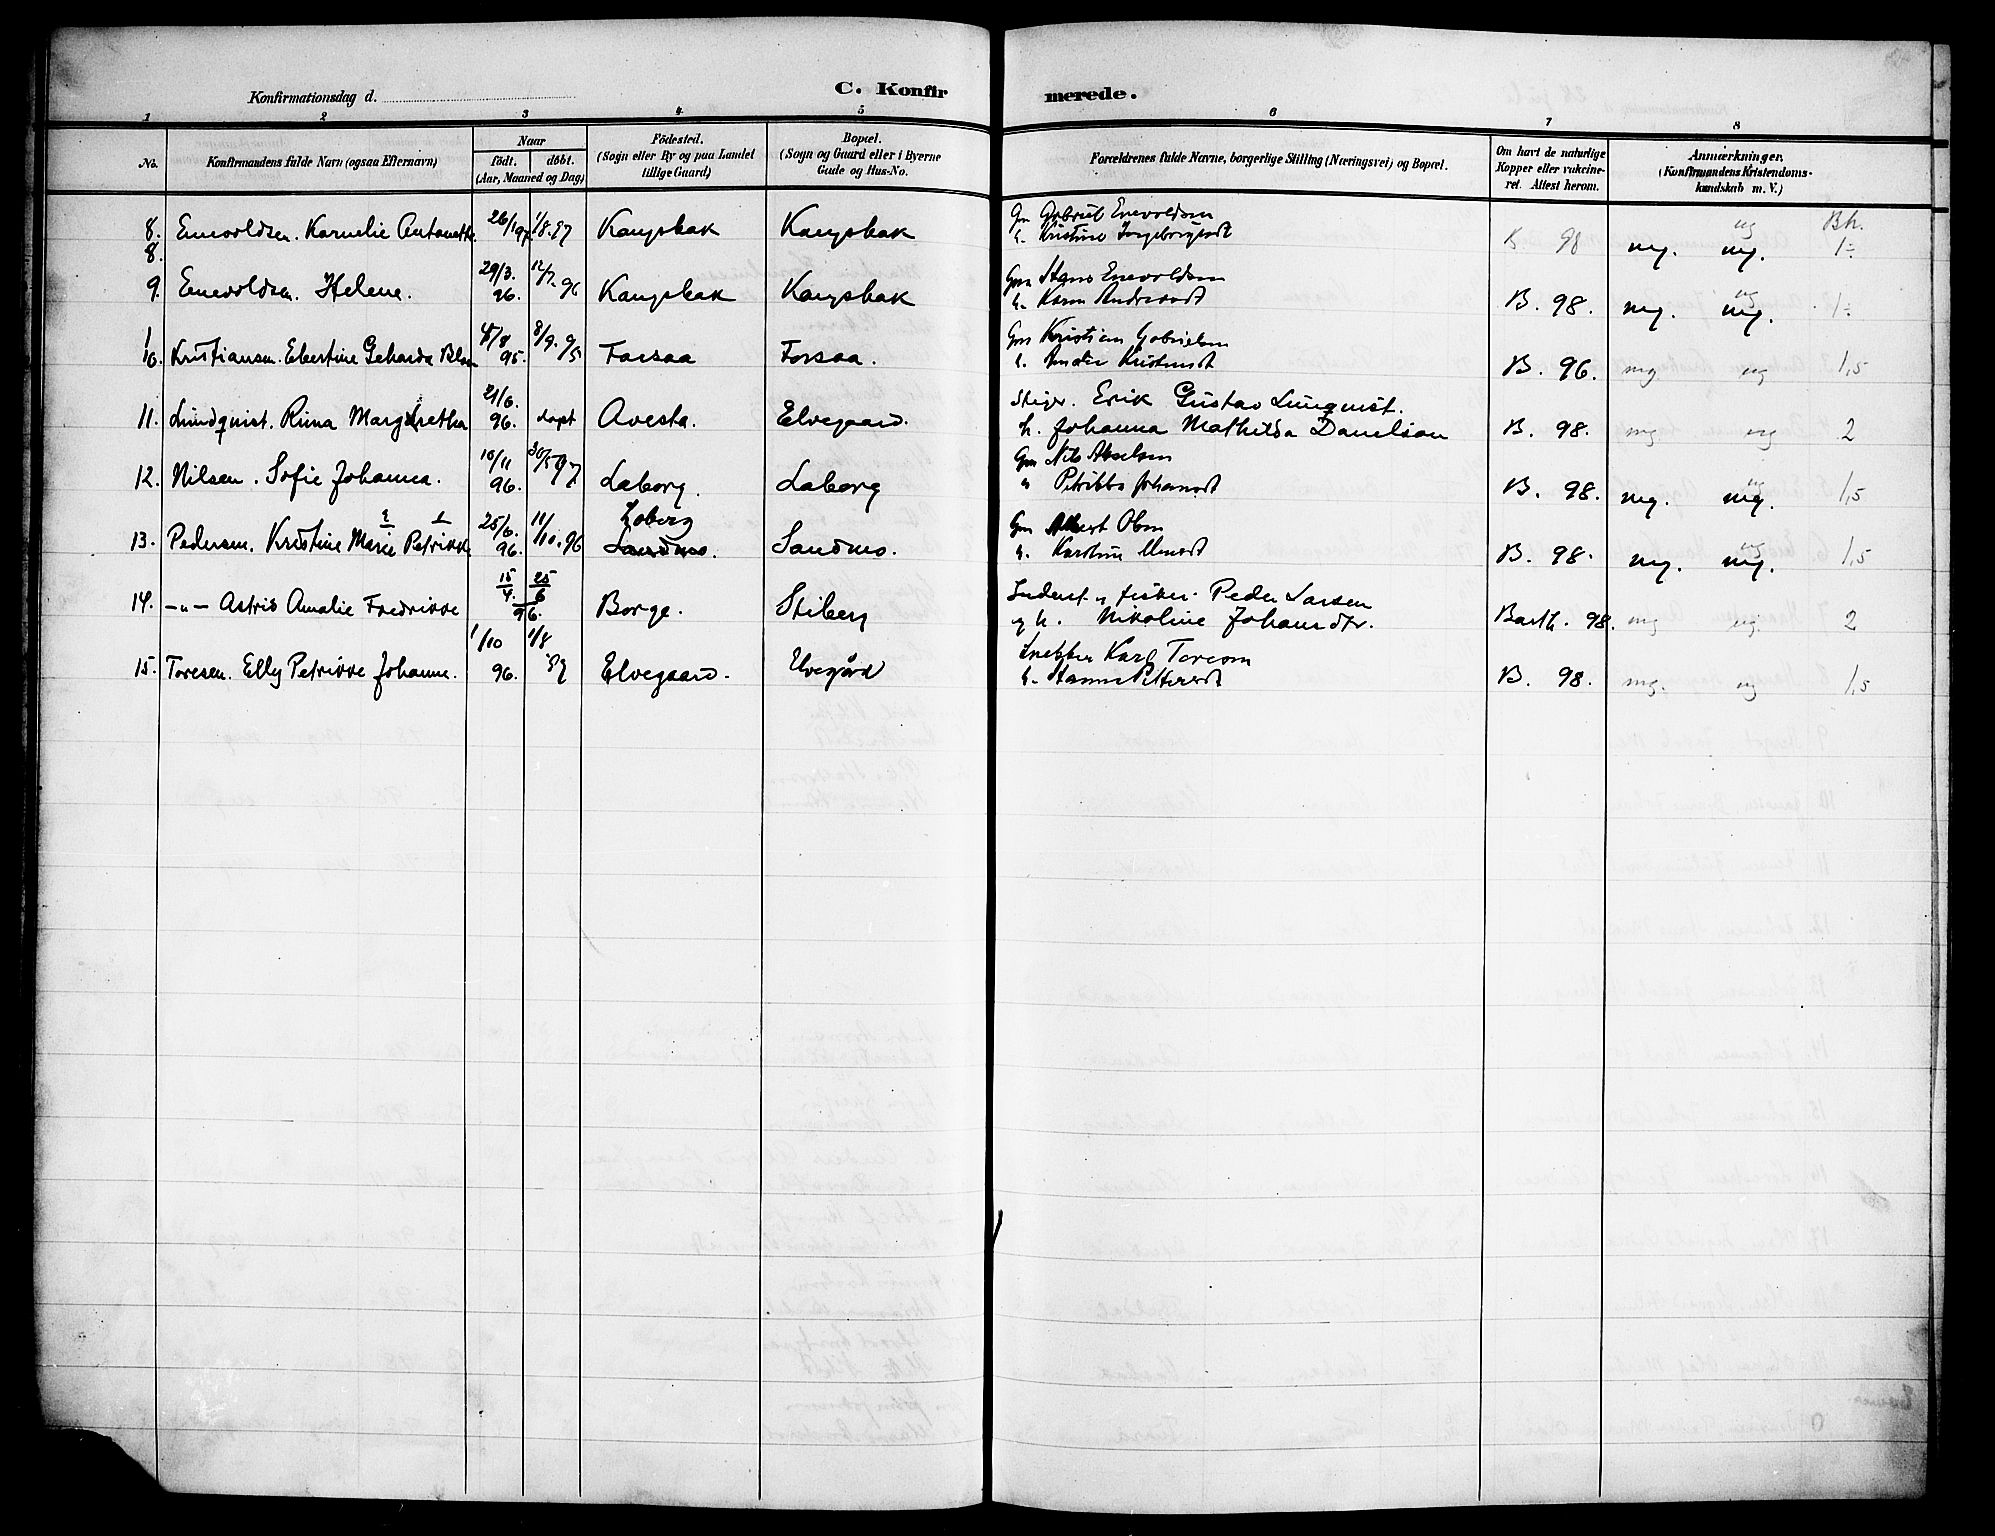 C. Konfirmerede.
Konfirmationsdag d.
1 2 3 4 5 6 7 8
No. Konfirmandens fulde Navn (ogsaa Efternavn) Naar født. døbt. (Aar, Maaned og Dag) Fødested. (Sogn eller By og paa Landet tillige Gaard) Bopæl. (Sogn og Gaard eller i Byerne Gade og Hus-No. Forældrenes fulde Navne, borgerlige Stilling (Næringsvei) og Bopæl. Om havt de naturlige Kopper eller vakcineret. Attest herom. Anmærkninger. (Konfirmandens Kristendomskundskab m. V.)
Gm Gabriel Enevoldsen ug Bh.
8. Enevoldsen. Kornelie Antonette. 26/1 97. 1/8. 97 Kanysbak Kanysbak h. Kristine Ingeborgsdt B 98 mg. mg. 1÷
8.
29/3. 12/7. 96 Gm Hans Enevoldsen
9. Enevoldsen. Helene. 96. Kanysbak Kanysbak h. Karen B. 98. mg. mg. ug 1÷
8/9. 95 Gm Kristian Gabrielsen
10. Kristiansen. Ebertine Geharda 95. Forsaa Forsaa. h. B. 96. mg. ug 1,5
21/6. Stiger. Erik Gustav Lunqvist.
11. Lundquist. Runa Margaretha 96. døpt Avesta. Elvegaard. h. Johanna Mathilda Danielson B. 98. mg ug 2
10/11 30/5 97 Gm Nils Akselsen
12. Nilsen. Sofie Johanna. 96. Laberg. Laberg Johansdt B. 98. mg. mg. ug 1,5
2 1 25/6. 11/10. 96 Loberg Gm Albert Olsen
13. Pedersen. Kristine Marie Petrikke 96. Sandmo. Sandmo. h. Karoline B. 98. mg. mg. ug 1,5
15/4. 25/6 Inderst og fisker. Peder Larsen
14. -"- Astrid Amalie Fredrikke 96. Borge. Stiberg og h. Nikoline Johansdtr. Barth. 98. mg ug. 2
1/10 1/8 Snekker Karl Toresen
15. Toresen. Elly Petrikke Johanne. 96. 97 Elvegaard. Elvegård h. Hanna Pettersdt B. 98. mg. ug 1,5